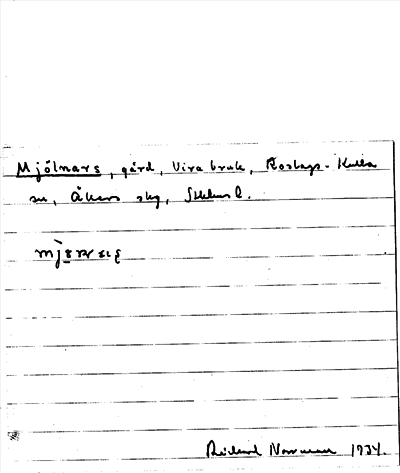 Mjölnars, gård, Vira bruk, Roslags-Kulla
sn, Åkers skg, Sthlms l.
Rickard Norrman 1934.